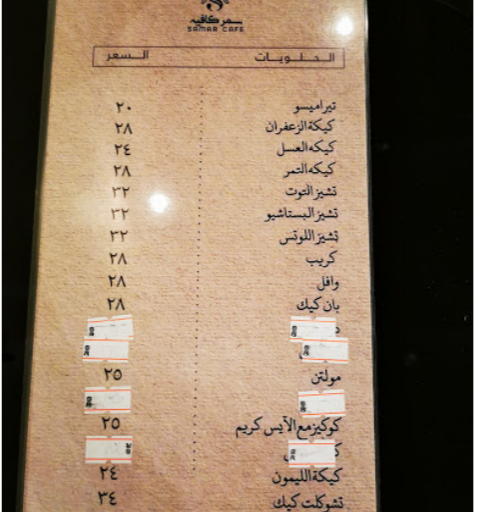 سمر كافيه
SAMAR CAFE
الحلويات السعر
تيراميسو ٢٠
كيكة الزعفران ٢٨
كيكه العسل ٢٤
كيكه التمر ٢٨
تشيز التوت ٣٢
تشيز البستاشيو ٣٢
تشيز اللوتس ٣٢
كريب ٢٨
وافل ٢٨
بان كيك ٢٨
مولتن ٢٥
كوكيز مع الآيس كريم ٢٥
كيكة الليمون ٢٤
تشوكلت كيك ٣٤